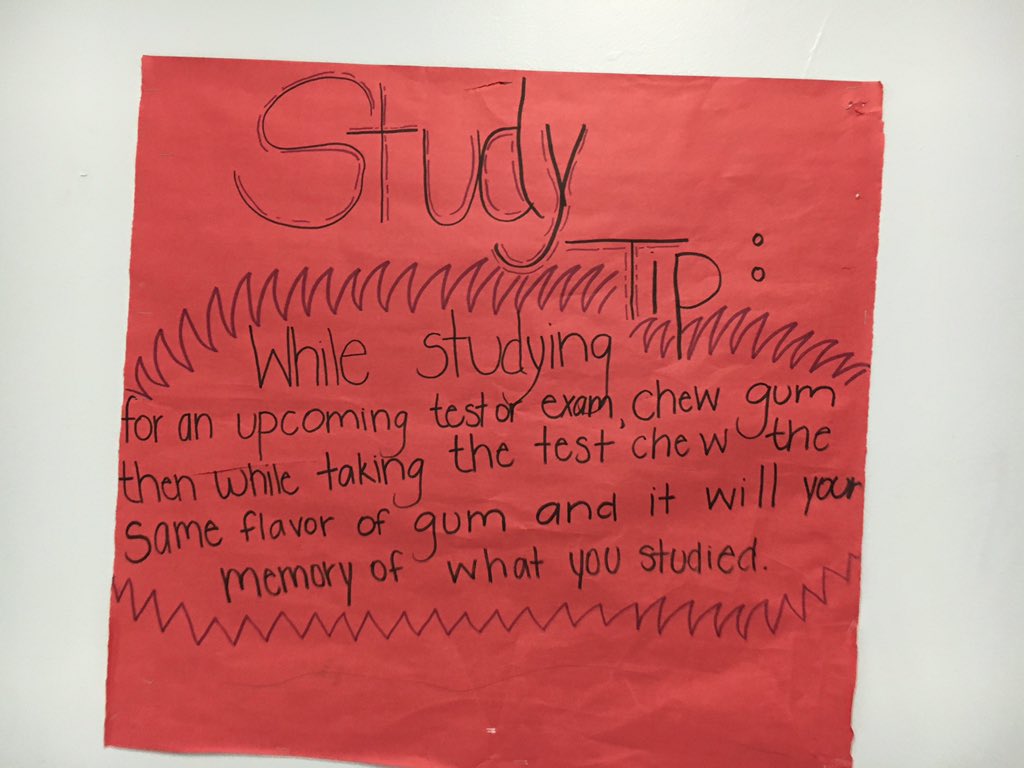 Study
Tip:
While studying
for an upcoming test or exam, chew gum
then while taking the test chew the
same flavor of gum and it will your
memory of what you studied.